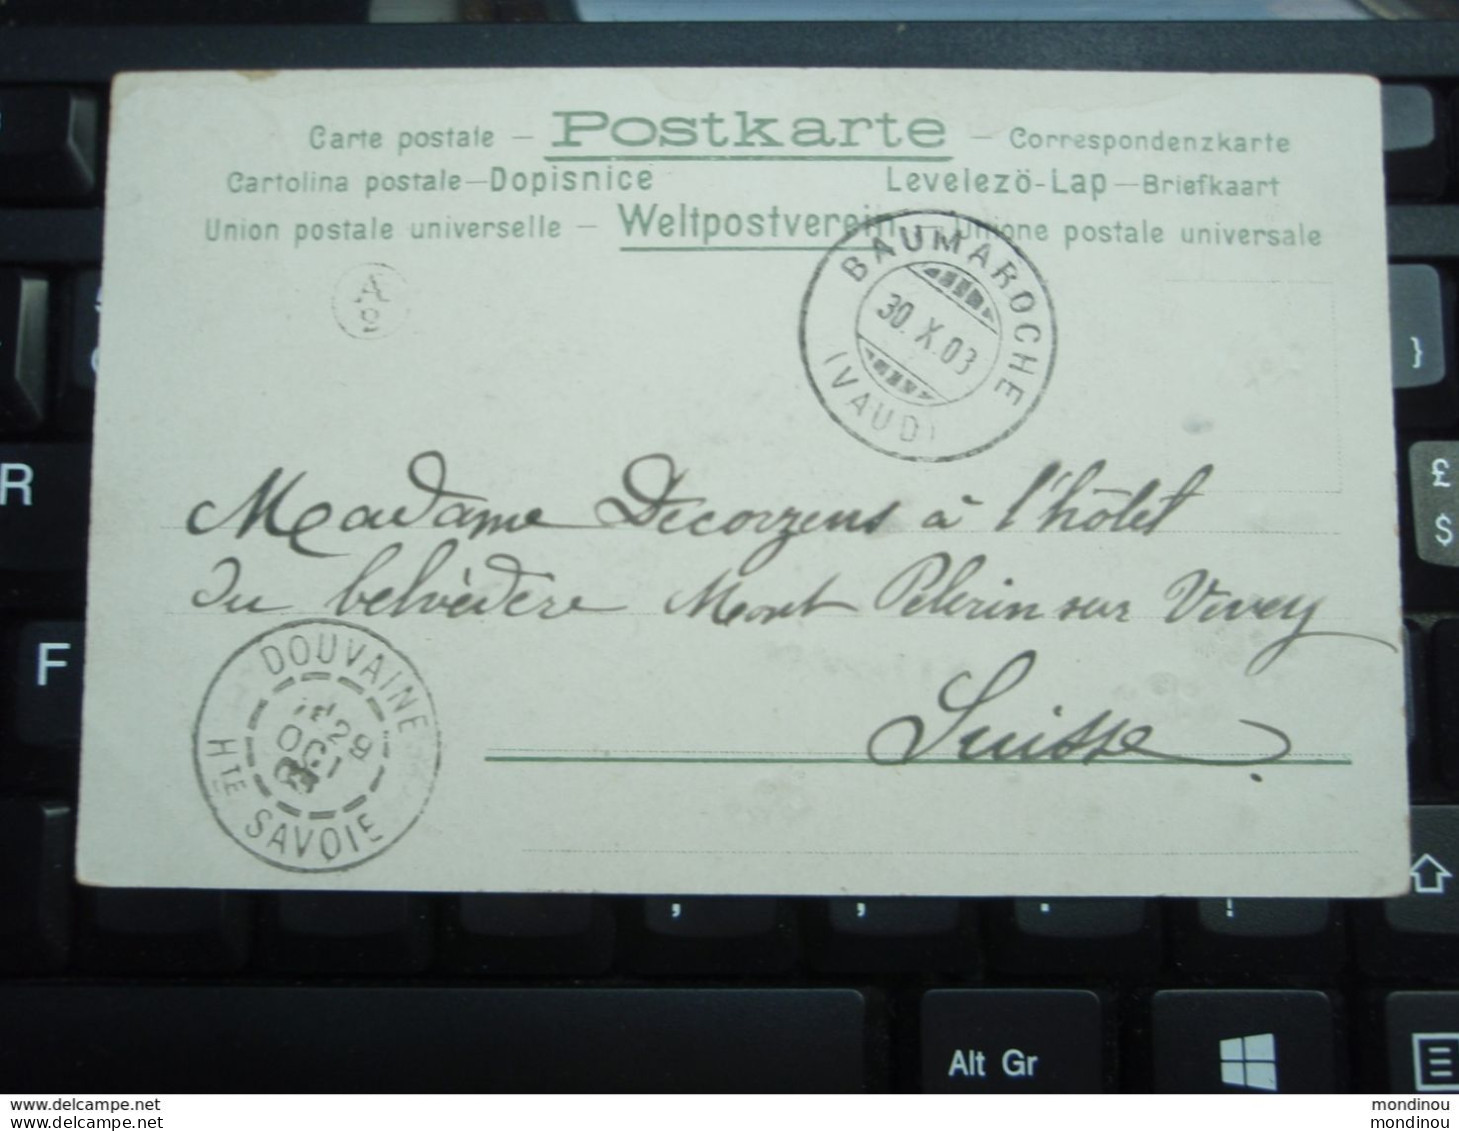 Carte postale — Postkarte — Correspondenzkarte
Cartolina postale — Dopisnice Levelezö-Lap — Briefkaart
Union postale universelle — Weltpostverein — Unione postale universale
BAUMAROCHE
30.X.03
(VAUD)
Madame Decorzens à l'hôtel
du belvédère Mont Pélerin sur Vivey
Suisse.
DOUVAINE
29
OCT
03
HTE SAVOIE
R
F
}
£
$
!
Alt Gr
www.delcampe.net
www.delcampe.net
mondinou
mondinou